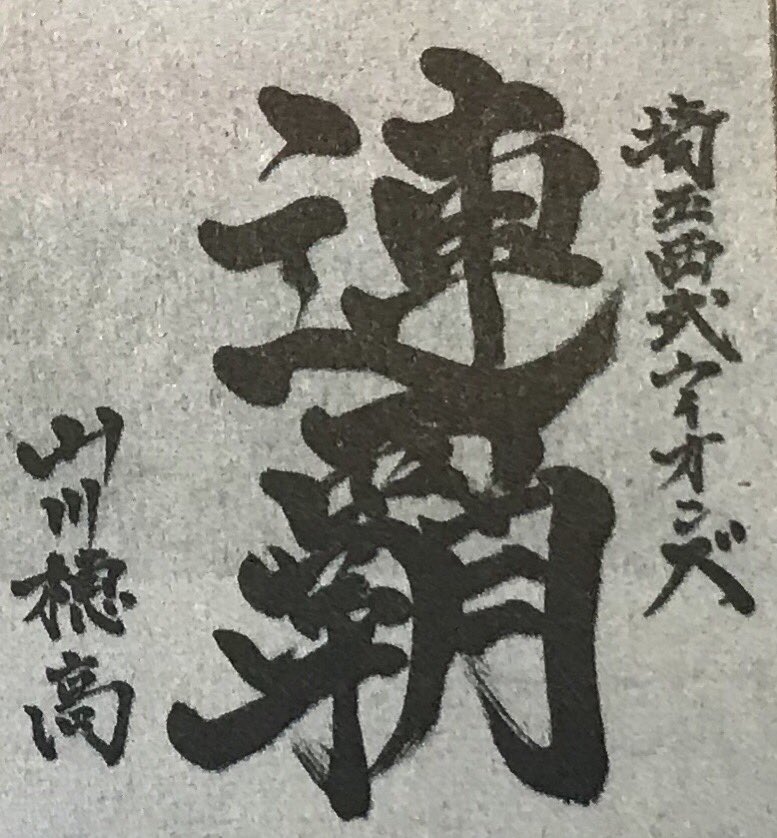 埼玉西武ライオンズ
連覇
山川穂高